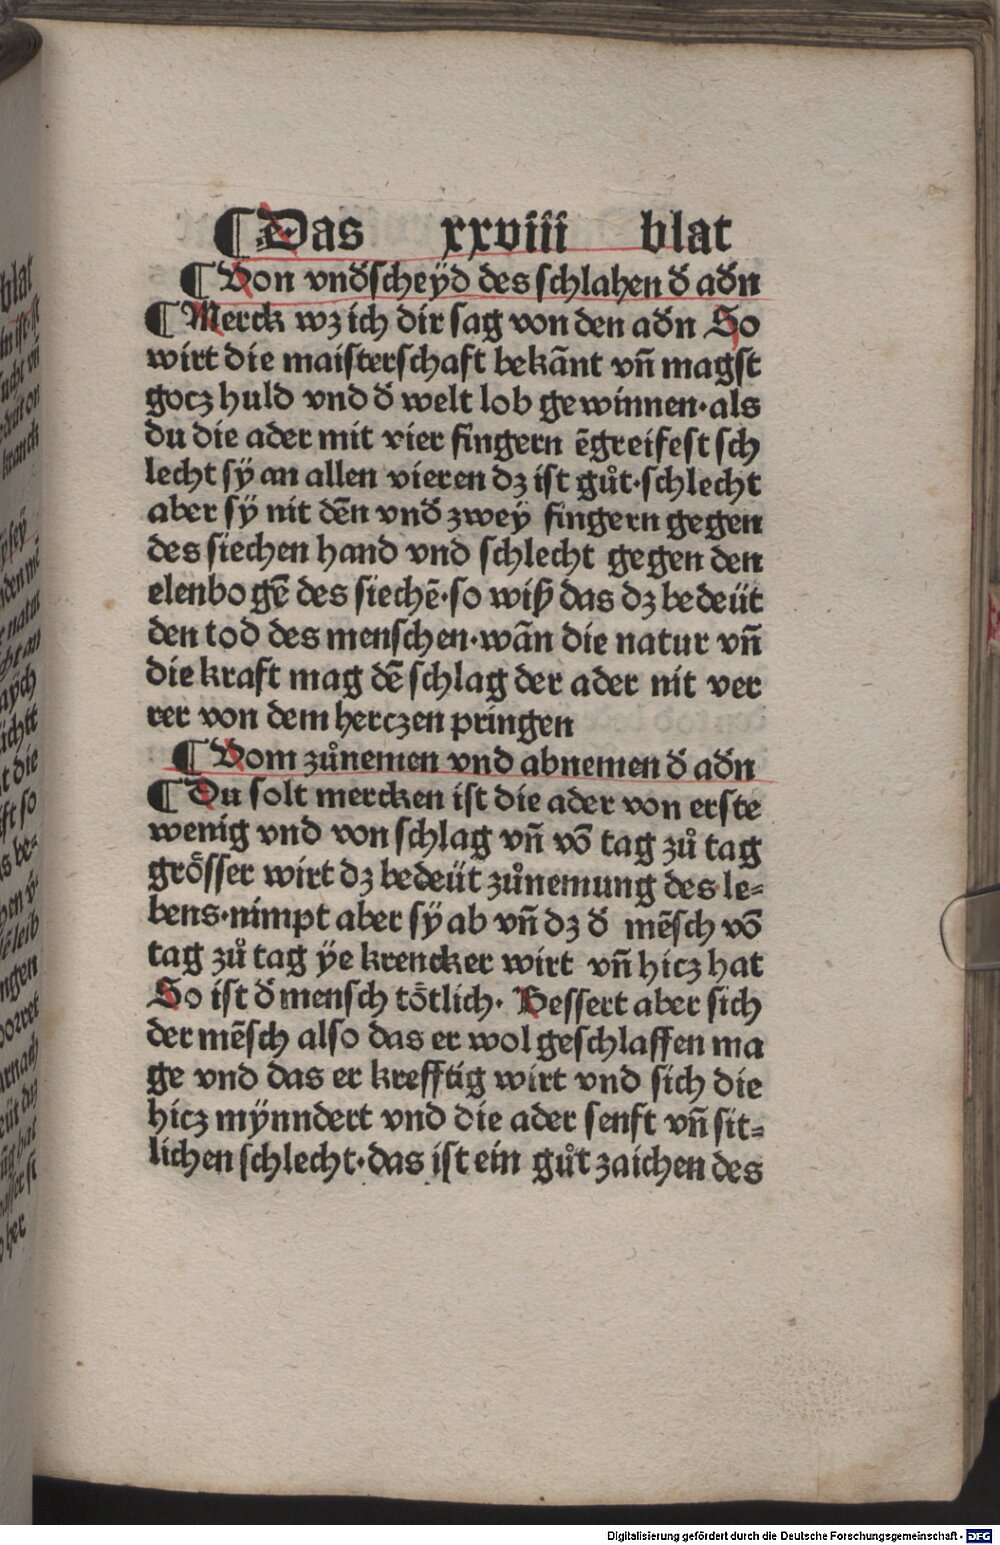 ¶ Das xxviii blat
¶ Von vnd̄scheÿd des schlahen d̄ ad̄n
¶ Merck wz ich dir sag von den ad̄n So
wirt die maisterschaft bekānt vn̄ magst
gocz huld vnd d̄ welt lob gewinnen·als
du die ader mit vier fingern ēgreifest sch
lecht sÿ an allen vieren dz ist gůt·schlecht
aber sÿ nit dēn vnd̄ zweÿ fingern gegen
des siechen hand vnd schlecht gegen den
elenbogē des siechē·so wiß das dz bedeüt
den tod des menschen·wān die natur vn̄
die kraft mag dē schlag der ader nit ver
rer von dem herczen pringen
¶ Vom zůnemen vnd abnemen d̄ ad̄n
¶ Du solt mercken ist die ader von erste
wenig vnd von schlag vn̄ vō tag zů tag
grösser wirt dz bedeüt zůnemung des le⸗
bens·nimpt aber sÿ ab vn̄ dz d̄ mēsch vō
tag zů tag ÿe krencker wirt vn̄ hicz hat
So ist d̄ mensch tötlich· Bessert aber sich
der mēsch also das er wol geschlaffen ma
ge vnd das er krefftig wirt vnd sich die
hicz mÿnndert vnd die ader senft vn̄ sit⸗
lichen schlecht·das ist ein gůt zaichen des
Digitalisierung gefördert durch die Deutsche Forschungsgemeinschaft - DFG